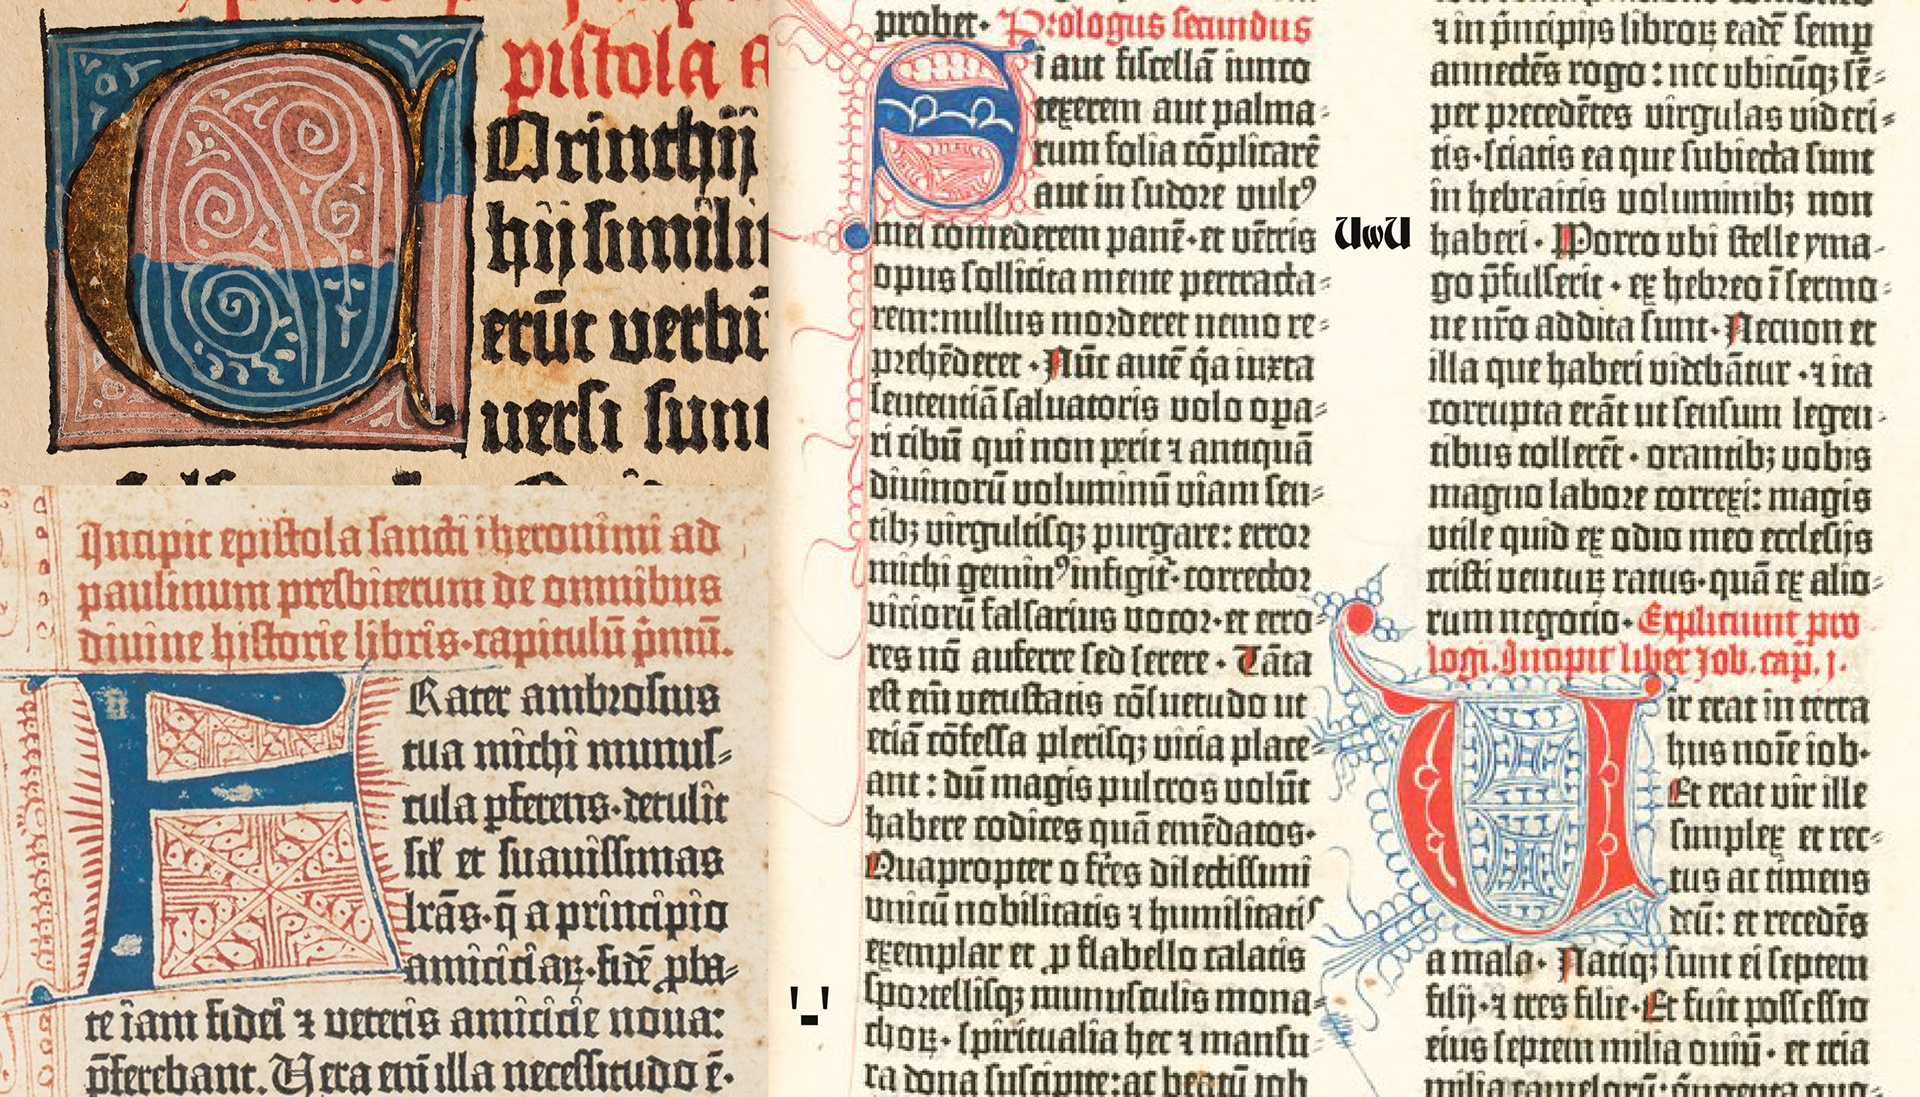 pistola
Orinthij
hij
erūt
uersi
Incipit epistola sancti iheronimi ad
paulinum presbiterum de omnibus
diuine historie libris·capitulū p̄mū.
FRater ambrosius
tua michi munus⸗
cula ꝑferens·detulit
sil’ et suauissimas
lrās·q̄ a principio
amiciciaꝝ·fidē ꝓba⸗
te iam fidei ⁊ veteris amicicie noua:
p̄ferebant. Uera eni illa necessitudo ē·
probet· Prologus secundus
Si aut fiscellā iunco
texerem aut palma⸗
rum folia cōplicarē
aut in sudore vultꝰ
mei comederem panē·et vētris
opus sollicita mente pertracta⸗
rem:nullus morderet nemo re⸗
prehēderet· Nūc autē q̄a iuxta
sententiā saluatoris volo oꝑa⸗
ri cibū qui non perit ⁊ antiquā
diuinorū voluminū viam sen⸗
tibꝫ virgultisqꝫ purgare: error
michi geminꝰ infigit̄· corrector
viciorū falsarius vocor·et erro⸗
res nō auferre sed serere· Tāta
est em̄ vetustatis cōsuetudo ut
eciā cōfessa plerisqꝫ vicia place⸗
ant : dū magis pulcros volūt
habere codices quā emēdatos·
Quapropter o fr̄es dilectissimi
unicū nobilitatis ⁊ humilitatis
exemplar et ꝓ flabello calatis
sportellisqꝫ munusculis mona⸗
choꝝ· spiritualia hec ⁊ mansu⸗
ra dona suscipite:ac beatū iob
'-'
UwU
⁊ in p̄ncipijs libroꝝ eadē semꝑ
annectēs rogo : nec vbicūqꝫ sē⸗
per precedētes virgulas videri⸗
tis·sciatis ea que subiecta sunt
in hebraicis voluminibꝫ non
haberi· Porro ubi stelle yma⸗
go p̄fulserit · ex hebreo ī sermo⸗
ne nr̄o addita sunt· Necnon et
illa que haberi videbātur ·⁊ ita
corrupta erāt ut sensum legen⸗
tibus tollerēt · orantibꝫ uobis
magno labore correxi: magis
utile quid ex odio meo ecclesijs
cristi uentuꝝ ratus·quā ex alio⸗
rum negocio· Expliciunt pro
logi. Incipit liber Job. cap̄. j.
Uir erat in terra
hus noīe iob·
Et erat vir ille
simplex et rec⸗
tus ac timens
deū: et recedēs
a malo· Natiqꝫ sunt ei septem
filij·⁊ tres filie·Et fuit possessio
eius septem milia ouiū · et tria